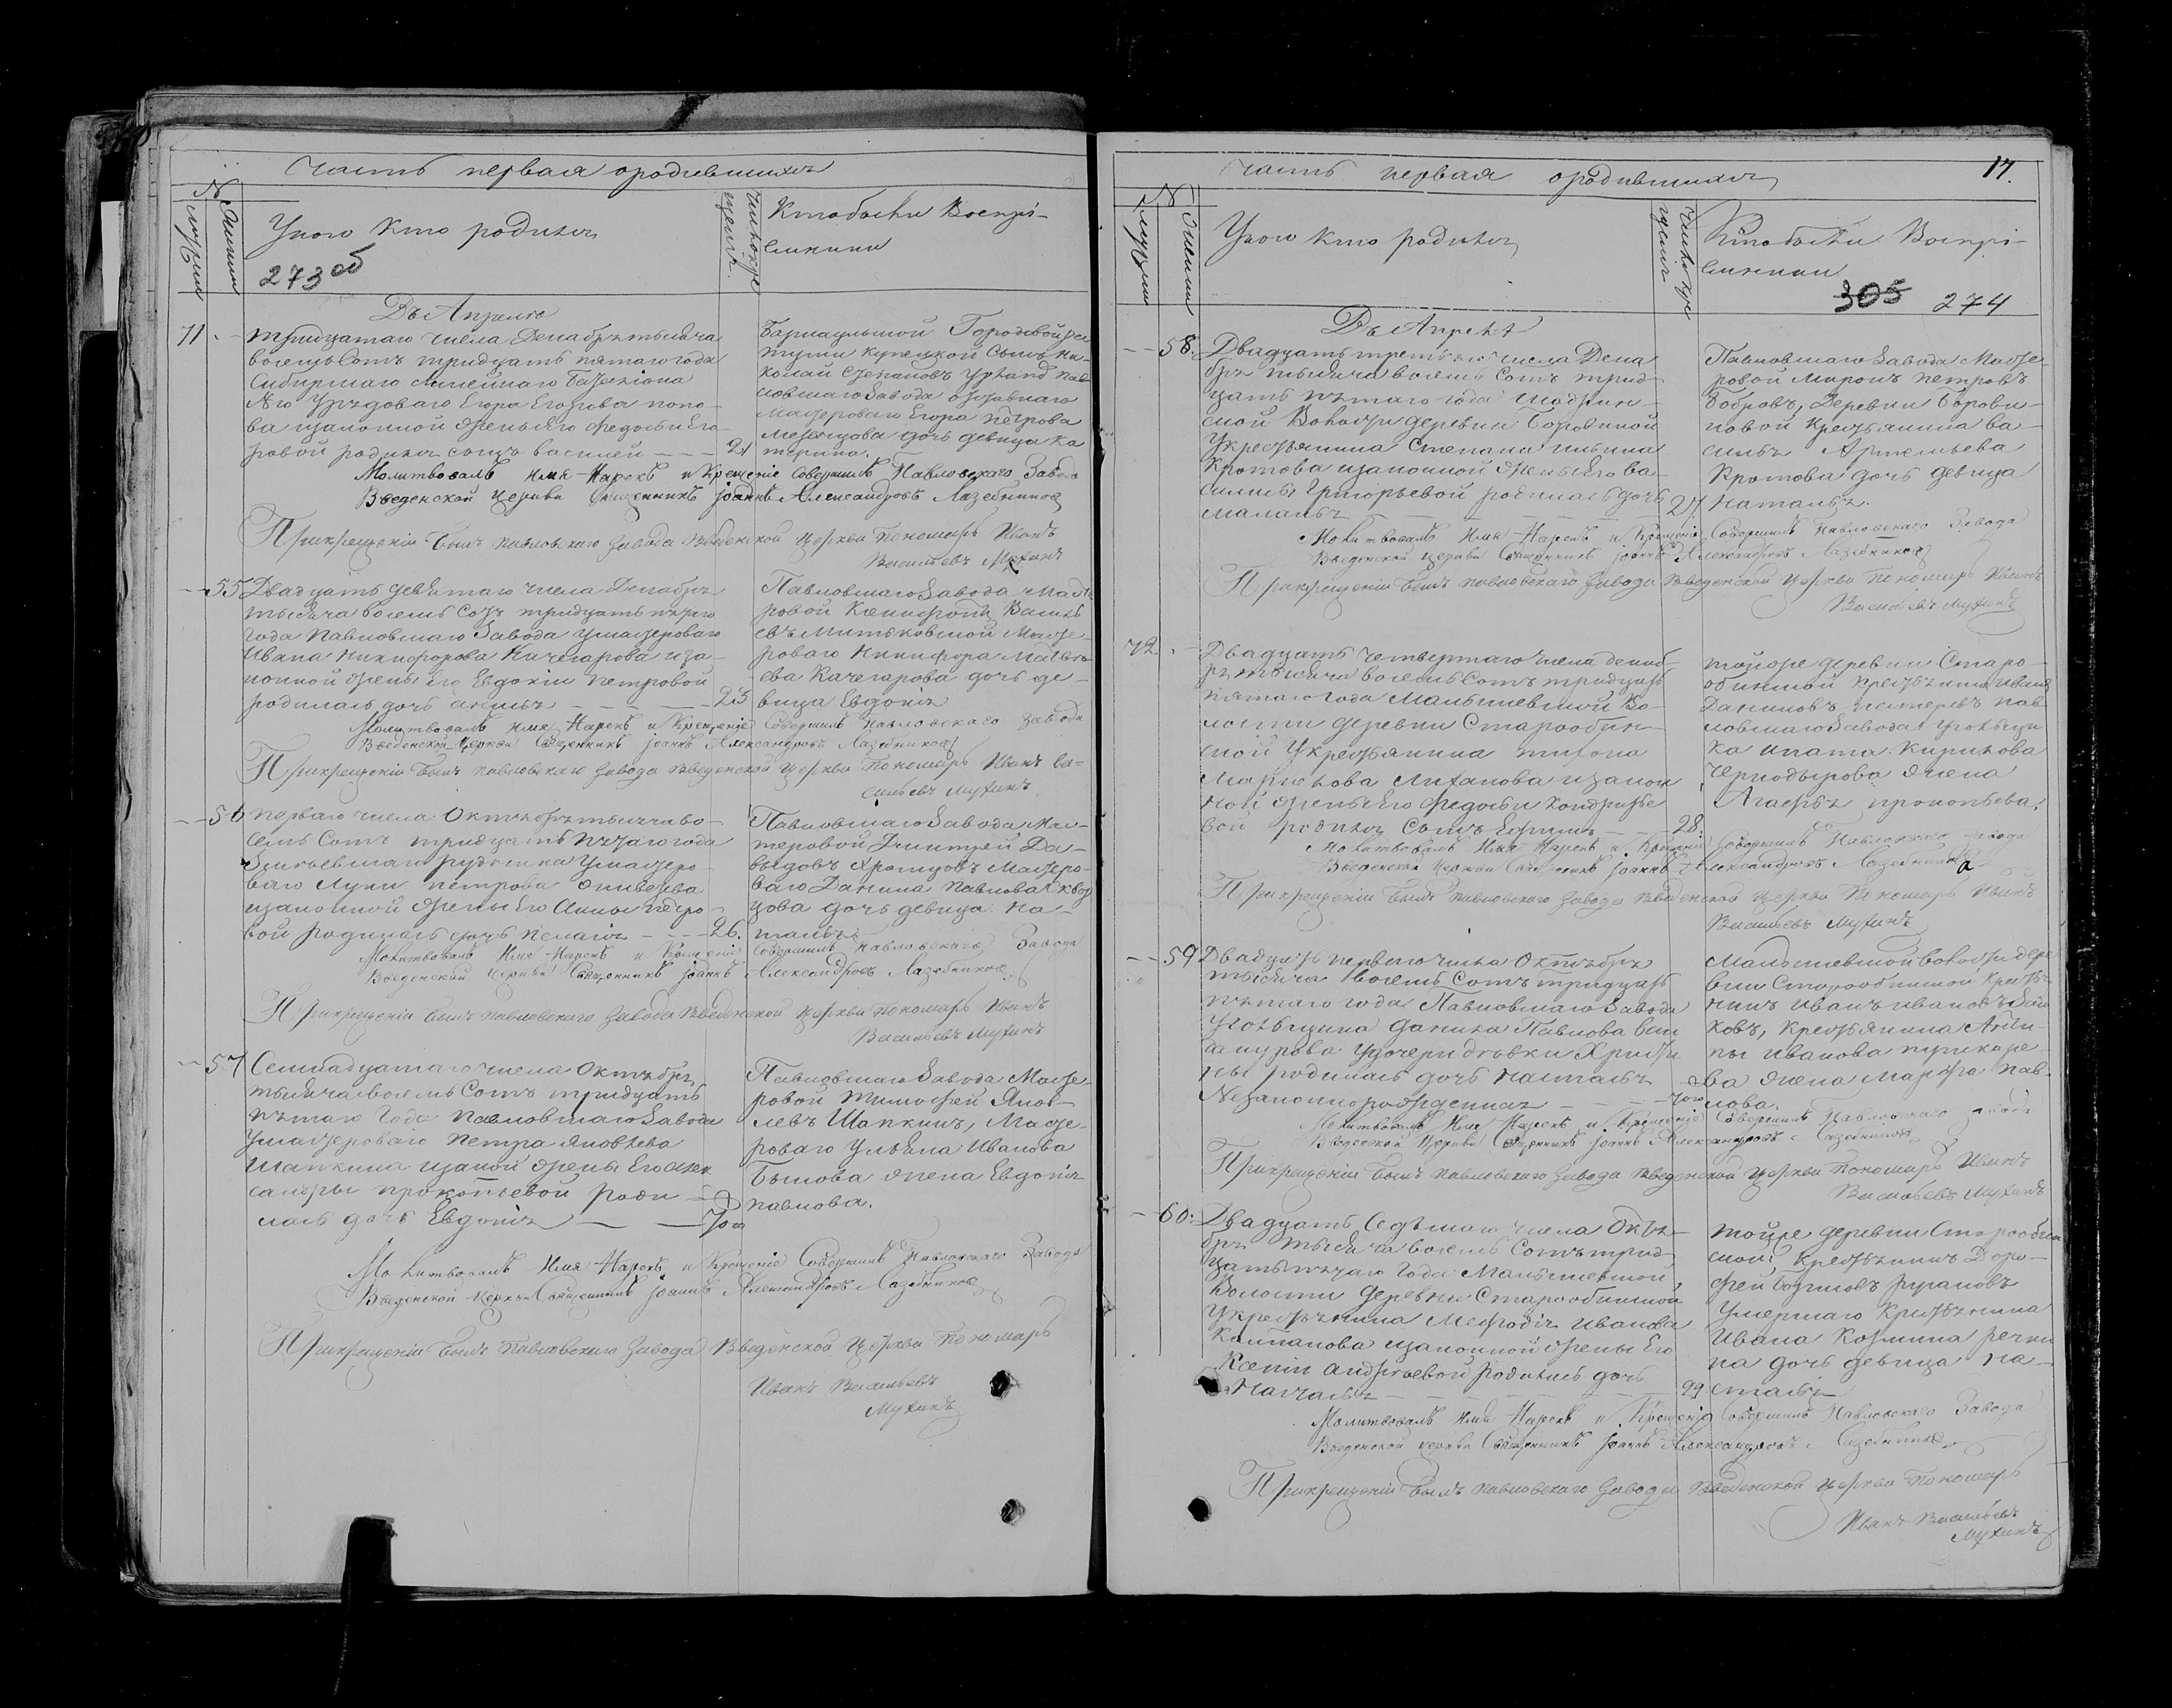 Часть первая ородившихся
№
Мужски
Женски
У кого кто родился
Число кре
щенія
Кто были Воспрі-
емники
273 об
Въ Апреле
71
Тридцатаго числа Декабря тысяча
восемь Сотъ тридцать пятаго года
Сибирскаго Линейнаго Баталіона
Егора Егорова попо-
ва изаконной жены Его Федосьи Его-
ровой родился сынъ василей
21
Барнаульской Городовой
купецкой Сынъ Ни-
колай Степановъ Пав-
ловскаго Завода
Мастероваго Егора Петрова
дочь девица Ка
терина.
Молитвовалъ Имя Нарекъ и Крещеніе Совершилъ Павловскаго Завода
Введенской церкви Священникъ Іоаннъ Александровъ Лазебников
Прикрещеніи былъ Павловскаго Завода Введенской Церкви Пономарь Иванъ
Васильевъ Мухинъ
55
Двадцать девятаго числа Декабря
тысяча восемь Сотъ тридцать пятаго
года Павловскаго Завода умастероваго
Ивана Никифорова Качегарова иза-
конной жены Его Евдокіи Петровой
родилась дочь
23
Павловскаго Завода Масте
ровой Ксенофонтъ Василь
евъ Митьковской Масте-
роваго Никифора Матве
ева Качегарова дочь де-
вица Евдокія
Молитвовалъ Имя Нарекъ и Крещеніе Совершилъ Павловскаго Завода
Введенской Церкви Священникъ Іоаннъ Александровъ Лазебников
Прикрещеніи былъ Павловскаго Завода Введенской Церкви Пономарь Иванъ Ва=
сильевъ Мухинъ
56
первого числа Октября тысяча во-
семь Сотъ тридцать пятаго года
рудника Умастеро-
ваго Луки петрова
изаконной жены Его Анны петро-
вой родилась дочь Пелагія
26.
Павловскаго Завода Мас-
теровой Дмитрей Да-
выдовъ Мастеро-
ваго Данила Павлова Сквор
цова дочь девица На-
талья
Молитвовалъ Имя Нарекъ и Крещеніе Совершилъ Павловскаго Завода
Введенской Церкви Священникъ Іоаннъ Александровъ Лазебников
Прикрещеніи былъ Павловскаго Завода Введенской Церкви Пономарь Иванъ
Васильевъ Мухинъ
57
Семнадцатаго числа Октября
тысяча восемь Сотъ тридцать
пятаго Года Павловскаго Завода
Умастероваго Петра Яковлева
Шапкина изакой жены Его Алек
сандры прокопьевой роди-
лась дочь Евдокія
Павловскаго Завода Масте
ровой Тимофей Яков
левъ Шапкинъ, Масте-
роваго Ульяна Иванова
Быкова жена Евдокія
павлова.
Молитвовалъ Имя Нарекъ и Крещеніе Совершилъ Павловскаго Завода
Введенской Церкви Священникъ Іоаннъ Александровъ Лазебников
Прикрещеніи былъ Павловскаго Завода Введенской Церкви Пономарь
Иванъ Васильевъ
Мухинъ
17.
Часть первая ородившихся
№
Мужски
Женски
У кого кто родился
Число кре
щенія
Кто были Воспрі-
емники
305 274
Въ Апреле
58.
Двадцать третьяго числа Дека
бря тысяча восемь Сотъ трид-
цать пятаго года Шадрин-
ской Волости деревни Боровиковой
Укрестьянина Степана
Кротова изаконной жены Его Ва-
силисы Григорьевой родилась дочь
Маланья
27.
Павловскаго Завода Масте-
ровой Миронъ Петровъ
Бобровъ, Деревни Борови-
ковой Крестьянина Ва-
силья Артемьева
Кротова дочь девица
Наталья.
Молитвовалъ Имя Нарекъ и Крещеніе Совершилъ Павловскаго Завода
Введенской Церкви Священникъ Іоаннъ Александровъ Лазебников
Прикрещеніи былъ Павловскаго Завода Введенской Церкви Пономарь Иванъ
Васильевъ Мухинъ
72
Двадцать четвертаго числа декаб-
ря тысяча восемь Сотъ тридцать
пятаго года Малышевской Во-
лости деревни Старообин-
ской Укрестьянина тихона
Лиханова изакон
ной жены Его Федосьи Кондратье
вой родился Сынъ Ефимъ
28.
тойже деревни Старо-
обинской Крестьянинъ Иванъ
Даниловъ Пав
ловскаго Завода Уголщи
ка ипата Кирилова
Чернодырова жена
Агафья прокопьева.
Молитвовалъ Имя Нарекъ и Крещеніе Совершилъ Павловскаго Завода
Введенской Церкви Священникъ Іоаннъ Александровъ Лазебников
Прикрещеніи былъ Павловскаго Завода Введенской Церкви Пономарь Иванъ
Васильевъ Мухинъ
59
Двадцать первого числа Октября
тысяча Восемь Сотъ тридцать
пятаго года Павловскаго Завода
Данила Павлова
Удочери девки Христи
ны родилась дочь Настасья
Незаконнорожденная
Малышевской волости дере
вни Старообинской Крестья-
нинъ Иванъ Ивановъ
ковъ, Крестьянина Анти-
пы Иванова
ва жена Марфа Пав-
лова.
Молитвовалъ Имя Нарекъ и Крещеніе Совершилъ Павловскаго Завода
Введенской Церкви Священникъ Іоаннъ Александровъ Лазебников
Прикрещеніи былъ Павловскаго Завода Введенской Церкви Пономарь Иванъ
Васильевъ Мухинъ
60.
Двадцать Седьмаго числа Октя-
бря тысяча восемь Сотъ трид
цать пятаго Года Малышевской
Волости деревни Старообинской
Укрестьянина Мефодія Иванова
Колпакова изаконной жены Его
Ксеніи Андреевой родилась дочь
Настасья
29
тойже деревни Старообин
ской Крестьянинъ Доро-
фей
Умершаго Крестьянина
Ивана Козмина
на дочь девица На-
стасья
Молитвовалъ Имя Нарекъ и Крещеніе Совершилъ Павловскаго Завода
Введенской Церкви Священникъ Іоаннъ Александровъ Лазебников
Прикрещеніи былъ Павловскаго Завода Введенской Церкви Пономарь
Иванъ Васильевъ
Мухинъ